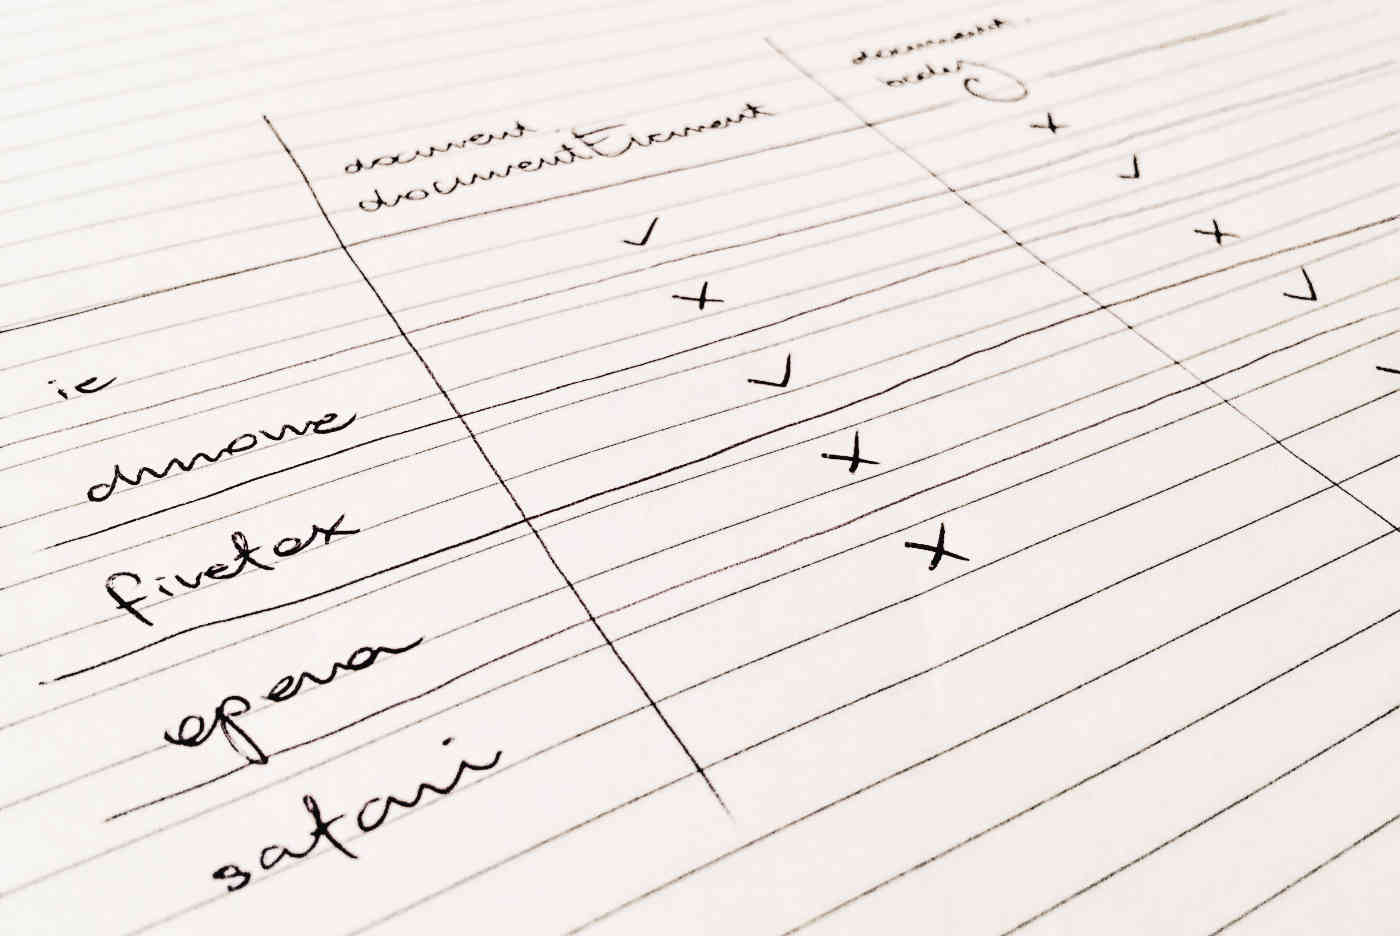 document.
documentElement
document.
body
ie ✓ x
chrome x ✓
firefox ✓ x
opera x ✓
safari x